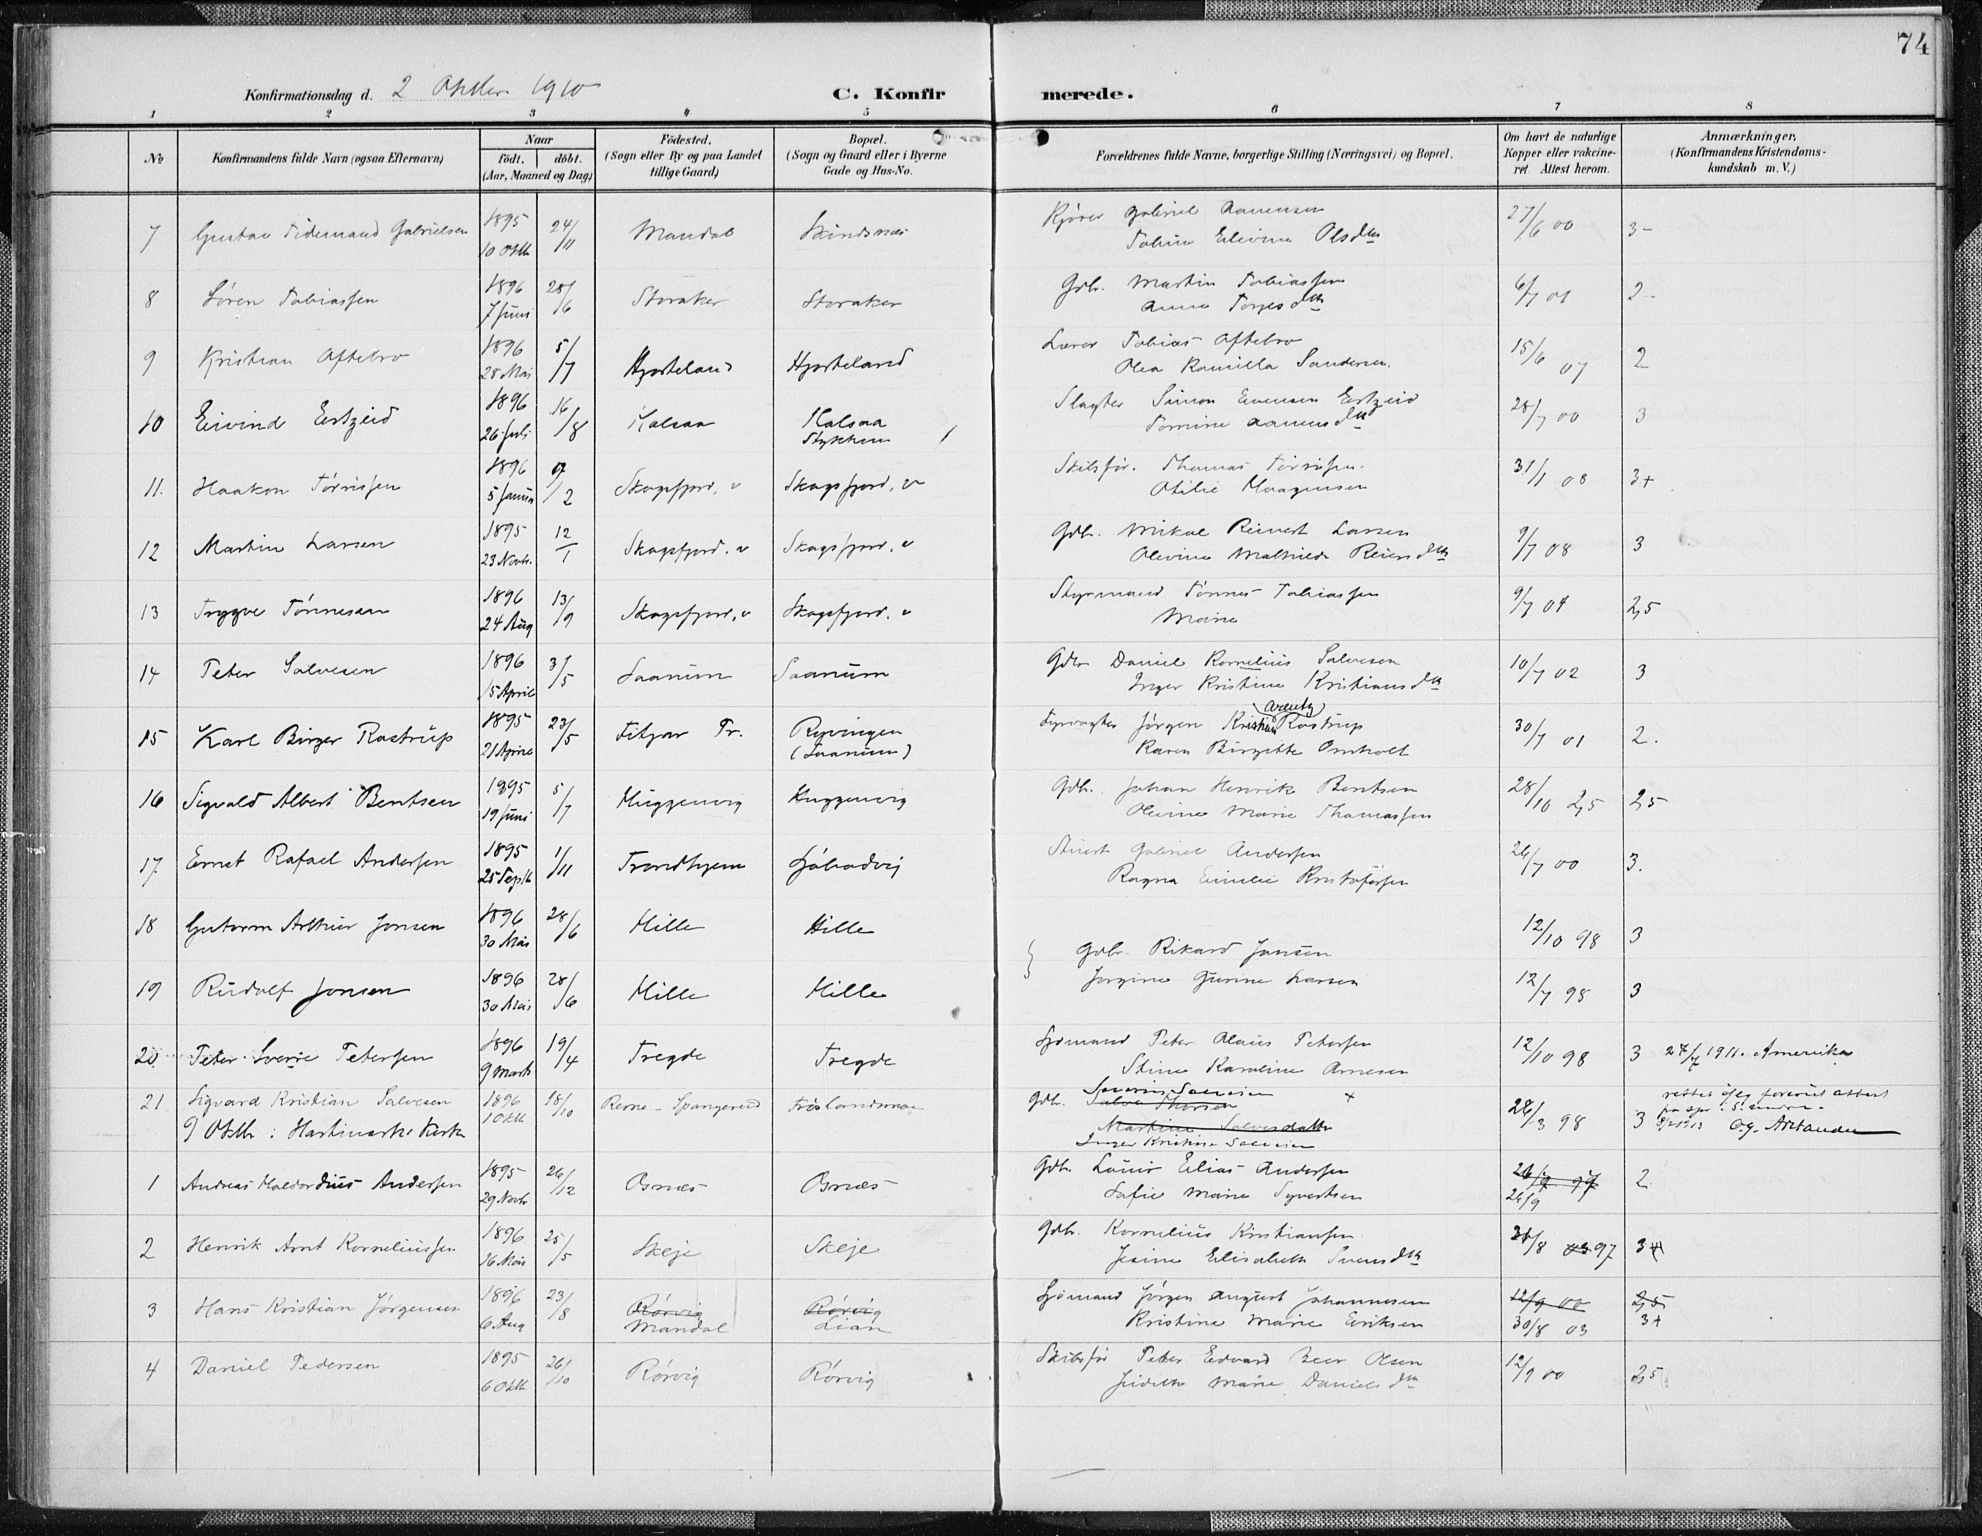 74
Konfirmationsdag d. 2 Oktober 1910 C. Konfirmerede.
1 2 3 4 5 6 7 8
No Konfirmandens fulde Navn (ogsaa Efternavn) Naar født. døbt. (Aar, Maaned og Dag) Fødested. (Sogn eller By og paa Landet tillige Gaard) Bopæl. (Sogn og Gaard eller i Byerne Gade og Hus-No. Forældrenes fulde Navne, borgerlige Stilling (Næringsvei) og Bopæl. Om havt de naturlige Kopper eller vakcineret. Attest herom. Anmærkninger. (Konfirmandens Kristendomskundskab m. V.)
7 Gustav Tidemand Gabrielsen 1895 10 Oktb 24/11 Mandal Skindsnæs Gabriel Aanensen 27/6 00 3-
Olsdtr
8 Søren Tobiassen 1896 7 Juni 28/6 Storaker Storaker Gdb. Martin Tobiassen 6/7 01 2-
Anna Torjesdtr
9 Kristian Oftebro 1896 28 Mai 5/7 Hjorteland Hjorteland Lærer Tobias Oftebro 15/6 07 2
Olea Kamilla Sandersen.
10 Eivind Ertzeid 1896 26 Juli 16/8 Kalsaa Kalsaa Stykkun Slagter Simon Evensen Ertzeid 28/7 00 3
Tomine Aanensdtr
11. Haakon Tørrissen 1896 5 Januar 9/2 Skogsfjord, v Skogsfjord, v Skibsfør. Thomas Tørrissen. 31/1 08 3+
Otilie Haagensen
12 Martin Larsen 1895 23 Novb. 12/1 Skogsfjord, v Skogsfjord, v Gdb. Mikal Reinert Larsen 9/7 08 3
Olevine Mathilde Reiersdtr
13 Trygve Tønnesen 1896 24 Aug 13/9 Skogsfjord, v Skogsfjord, v Styrmand Tønnes Tobiassen 9/7 04 2,5
Marie
14 Peter Salvesen 1896 15 April 3/5 Saanum Saanum Gdbr Daniel Kornelius Salvesen 10/7 02 3
Inger Kristine Kristiansdtr
15 Karl Birger Rostrup 1895 21 April 23/5 Fitjar Pr. Ryvingen (Saanum) Fyrvogter Jørgen Kristian Arentz Rostrup 30/7 01 2.
Karen Birgitte Omholt
16 Sigvald Albert Bentsen 1895 19 Juni 5/7 Huggenvig Huggenvig Gdb. Johan Henrik Bentsen 28/10 2,5 2,5
Olevine Marie Thomassen
17. Ernst Rafael Andersen 1895 25 Septb 1/11 Trondhjem Sjøbodvig Stuert Gabriel Andersen 26/7 00 3.
Ragna Emilie Kristofersen
18 Gutorm Arthur Jonsen 1896 30 Mai 28/6 Hille Hille 12/10 98 3
Gdb. Rikard Jonsen
19 Rudolf Jonsen 1896 30 Mai 28/6 Hille Hille Jorgine Gurine Larsen 12/7 98 3
20 Peter Sverre Petersen 1896 9 Marts 19/4 Tregde Tregde Sjømand Peter Olaus Petersen 12/10 98 3 27/4 1911. Amerika
Stine Karoline Arnesen
21 Sigvard Kristian Salvesen 1896 1 Oktb 18/10 Rerne - Spangereid Frøslandsnæs Gdb. Severin Salvesen Salve Thorsen 28/3 98 3 rettet ifølge forevist attest fra spr. i S. Undal. 1913 O.G. Artander
Martine Salvesdatter
9 Oktbr: Hartmarks Kirke Inger Kristine Salvesen
1 Andreas Haldordius Andersen 1895 29 Novb 26/12 Osnæs Osnæs Gdb. Louis Elias Andersen 26/9 97 26/9 2.
Sofie Marie Syvertsen
2 Henrik Arnt Korneliussen 1896 16 Mai 25/5 Skeje Skeje Gdb. Kornelius Kristiansen 31/8 97 3
Jesine Elisabeth Svensdtr
3 Hans Kristian Jørgensen 1896 6 Aug 23/8 Rørvig Mandal Rørvig Lian Sjømand Jørgen August Johannesen 12/9 00 30/8 03 2,5 3+
Kristine Marie Eriksen
4 Daniel Pedersen 1895 6 Oktb. 26/10 Rørvig Rørvig Skibsfør Peter Edvard Beer Olsen 12/9 00 2,5
Judith Marie Danielsdtr